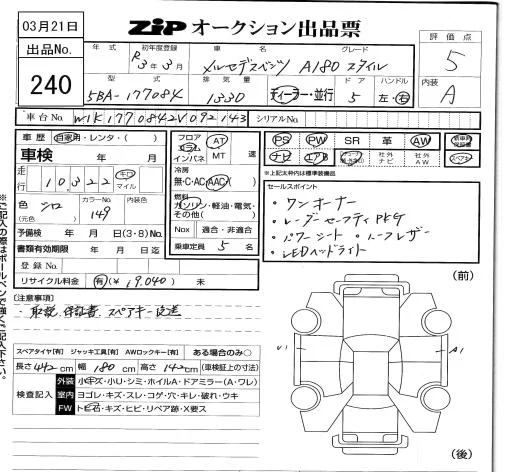 03月21日
ZIP オークション出品票
出品No.
240
評価点
5
内装
A
年式 初年度登録 車名 グレード
R3年3月 メルセデスベンツ A180 スタイル
型式 排気量 ドア ハンドル
5BA-177084 1330 ディーラー・並行 5 左・右
車台No. W1K1770842V092143 シリアルNo.
車歴 自家用・レンタ・( )
フロア コラム インパネ AT MT 速
PS PW SR 革 AW 新車時保証書
車検 年 月
ナビ エアB 社外ナビ 社外AW スペアキー
※上記太枠内は標準装備品
走行 10,322 キロ マイル
冷房 無・C・AC・AAC( )
色 シロ (元色) カラーNo 149 内装色
燃料 ガソリン・軽油・電気・その他( )
予備検 年 月 日(3・8)No.
Nox 適合・非適合
書類有効期限 年 月 日迄
乗車定員 5 名
登録No.
リサイクル料金 有(¥ 19,040) 未
セールスポイント
・ワンオーナー
・レーダーセーフティPKG
・パワーシート ・ハーフレザー
・LEDヘッドライト
[注意事項]
・取説、保証書、スペアキー後送
スペアタイヤ[有] ジャッキ工具[有] AWロックキー[有] ある場合のみ○
長さ442cm 幅180cm 高さ142cm (車検証上の寸法)
検査記入
外装 小キズ・小U・シミ・ホイルA・ドアミラー(A・ワレ)
室内 ヨゴレ・キズ・スレ・コゲ・穴・キレ・破れ・ウキ
FW トビ石・キズ・ヒビ・リペア跡・X要ス
(前)
U1
A1
(後)
※ご記入の際はボールペンで強くご記入下さい。